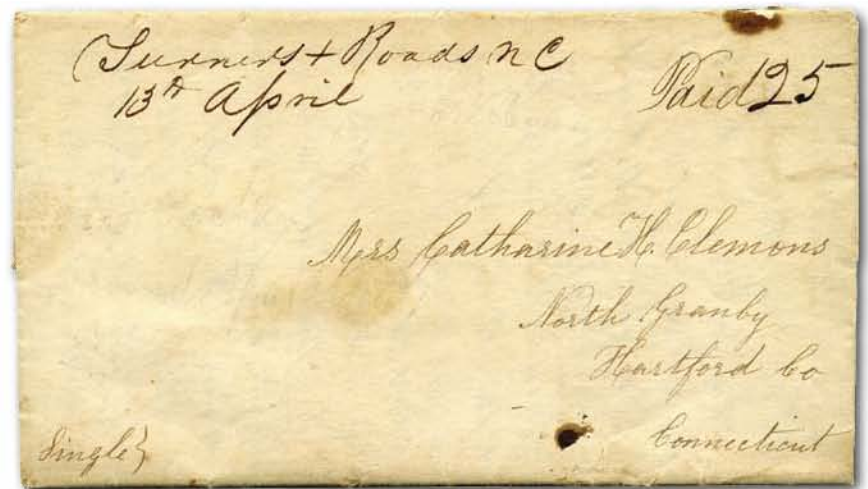 Turners + Roads N C
13th April
Paid 25
Mrs Catharine H. Clemons
North Granby
Hartford Co
Connecticut
Single}